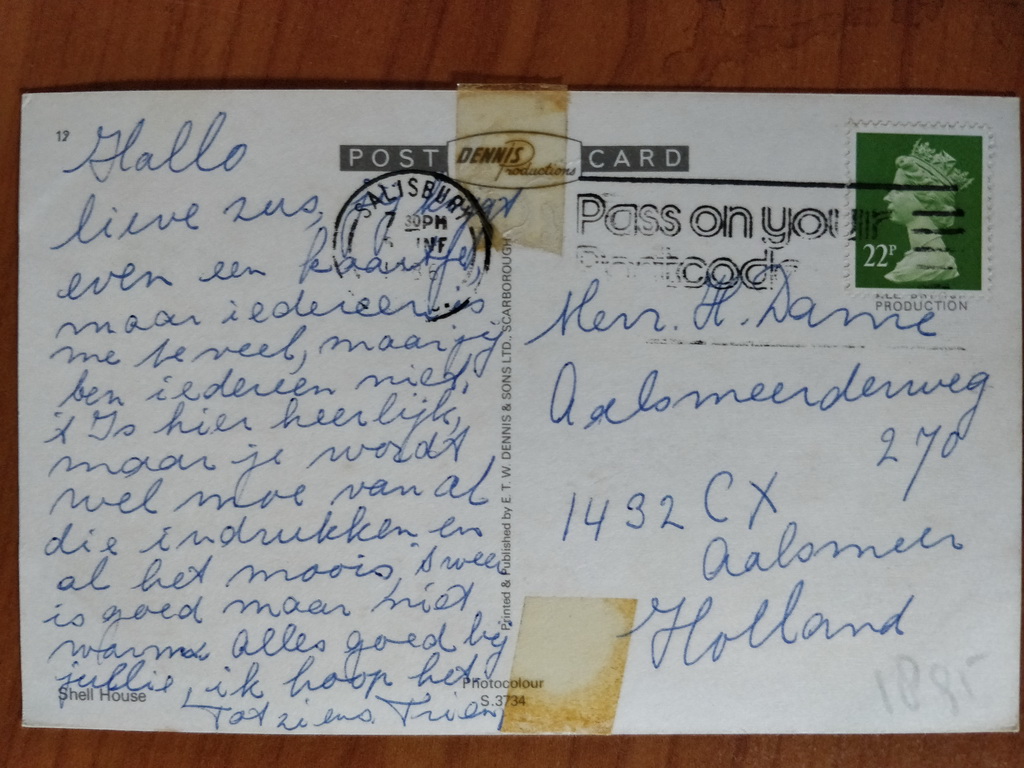 19
POST DENNIS Productions CARD
SALISBURY
7 30PM
Pass on your
Postcode
22P
PRODUCTION
Hallo
lieve zus,
even een kaartje,
maar iedereen is
me te veel, maar jij
ben iedereen niet,
't Is hier heerlijk,
maar je wordt
wel moe van al
die indrukken en
al het moois, 't weer
is goed maar niet
warm alles goed bij
jullie, ik hoop het.
Tot ziens Trien
Shell House
Printed & Published by E. T. W. DENNIS & SONS LTD., SCARBOROUGH
Photocolour
S.3734
Herr. H. Dame
Aalsmeerderweg
270
1432 CX
Aalsmeer
Holland